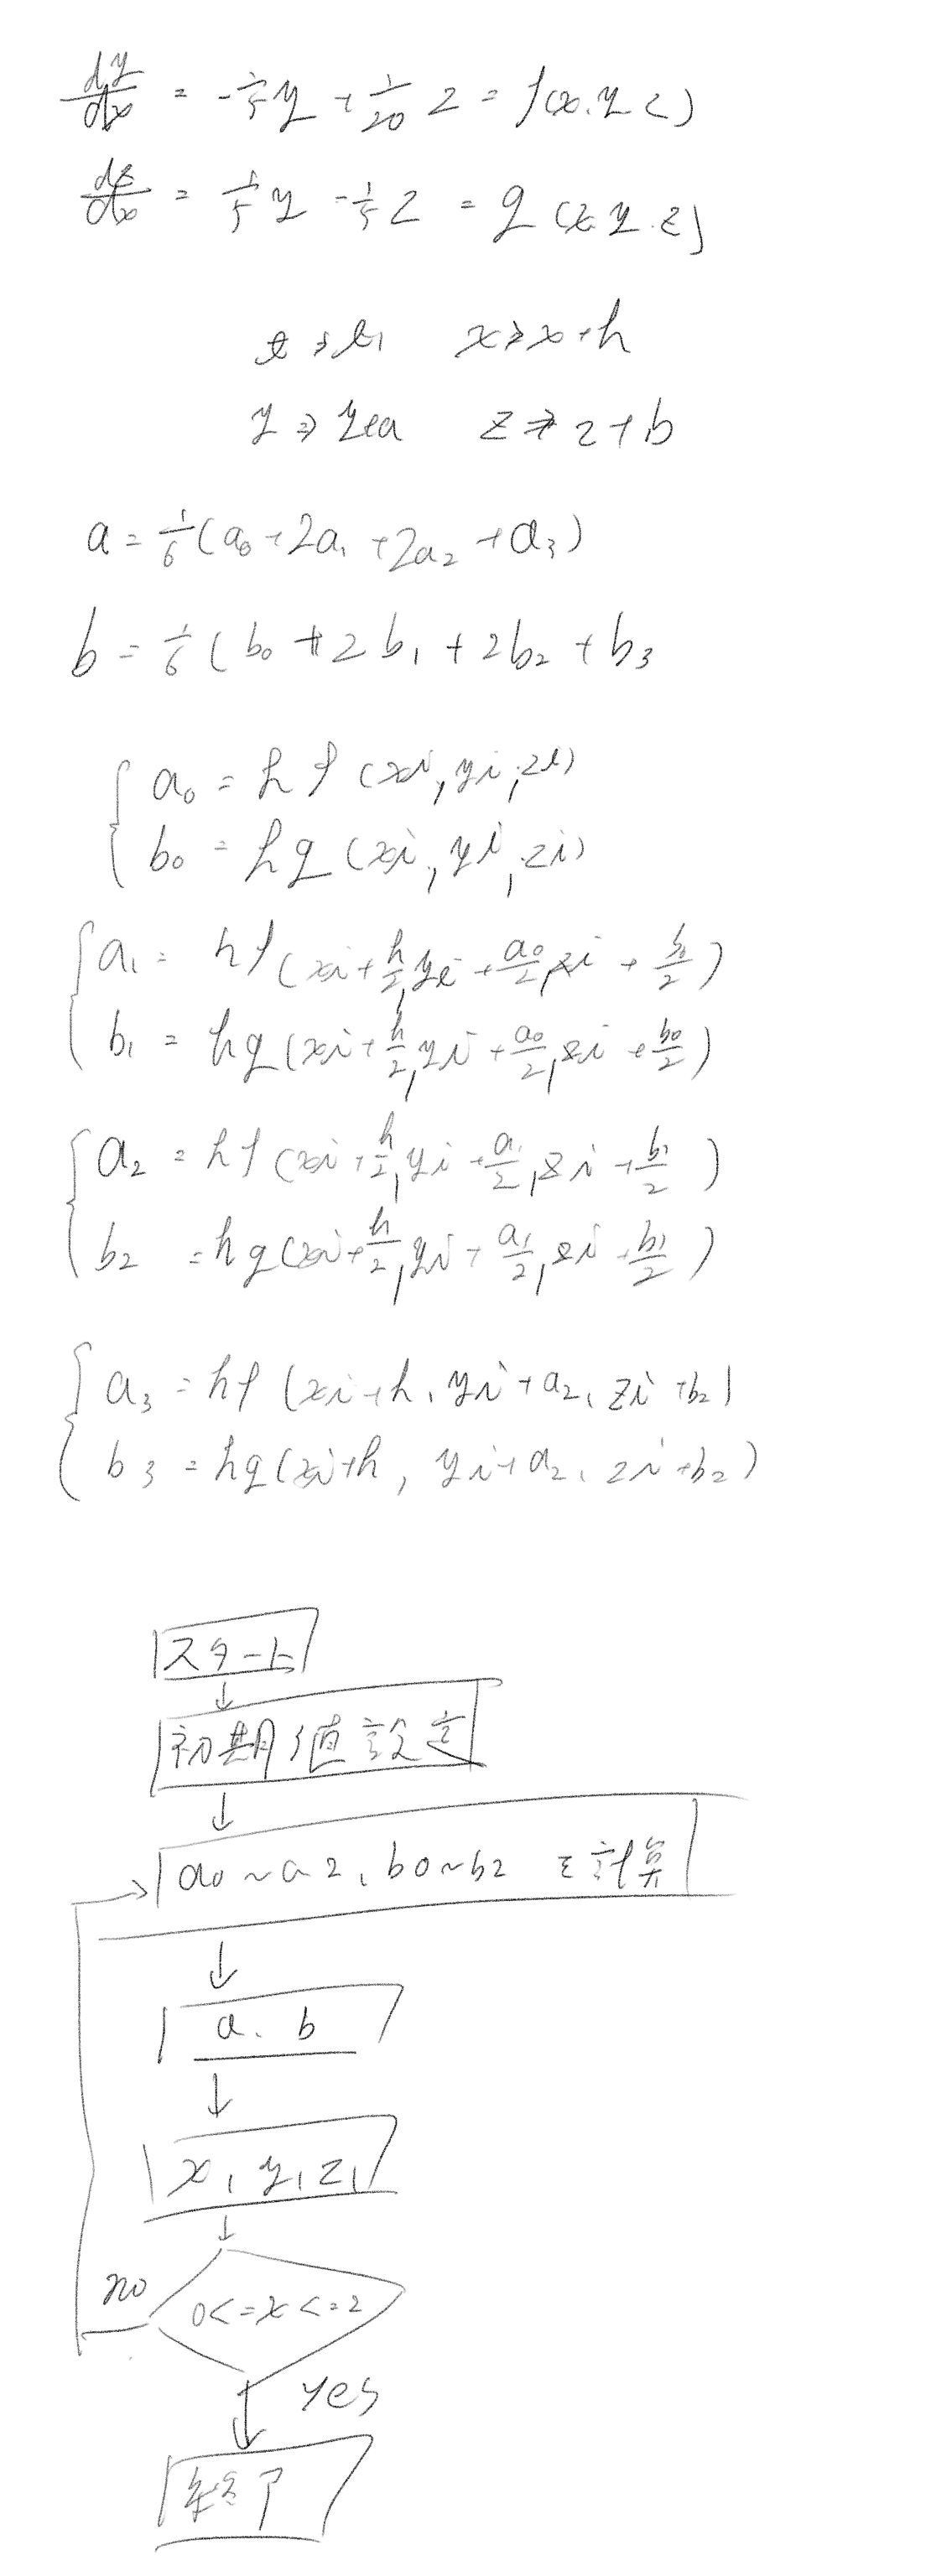 dy/dx = -1/5 y + 1/20 z = f(x.y z)
dz/dx = 1/5 y - 1/5 z = g (x.y.z)
x⇒x+h
y ⇒ y+a z ⇒ z+b
a = 1/6 (a0 + 2a1 + 2a2 + a3)
b = 1/6 ( b0 + 2b1 + 2b2 + b3
a0 = h f (xi, yi, zi)
b0 = hg (xi, yi, zi)
a1 = hf (xi + h/2, yi + a0/2, zi + b0/2)
b1 = hg (xi + h/2, yi + a0/2, zi + b0/2)
a2 = hf (xi + h/2, yi + a1/2, zi + b1/2)
b2 = hg (xi + h/2, yi + a1/2, zi + b1/2)
a3 = hf (xi+h, yi+a2, zi+b2)
b3 = hg(xi+h, yi+a2, zi+b2)
スタート
初期値設定
a0~a2, b0~b2 を計算
a. b
x, y, z,
no
0<=x<=2
yes
終了